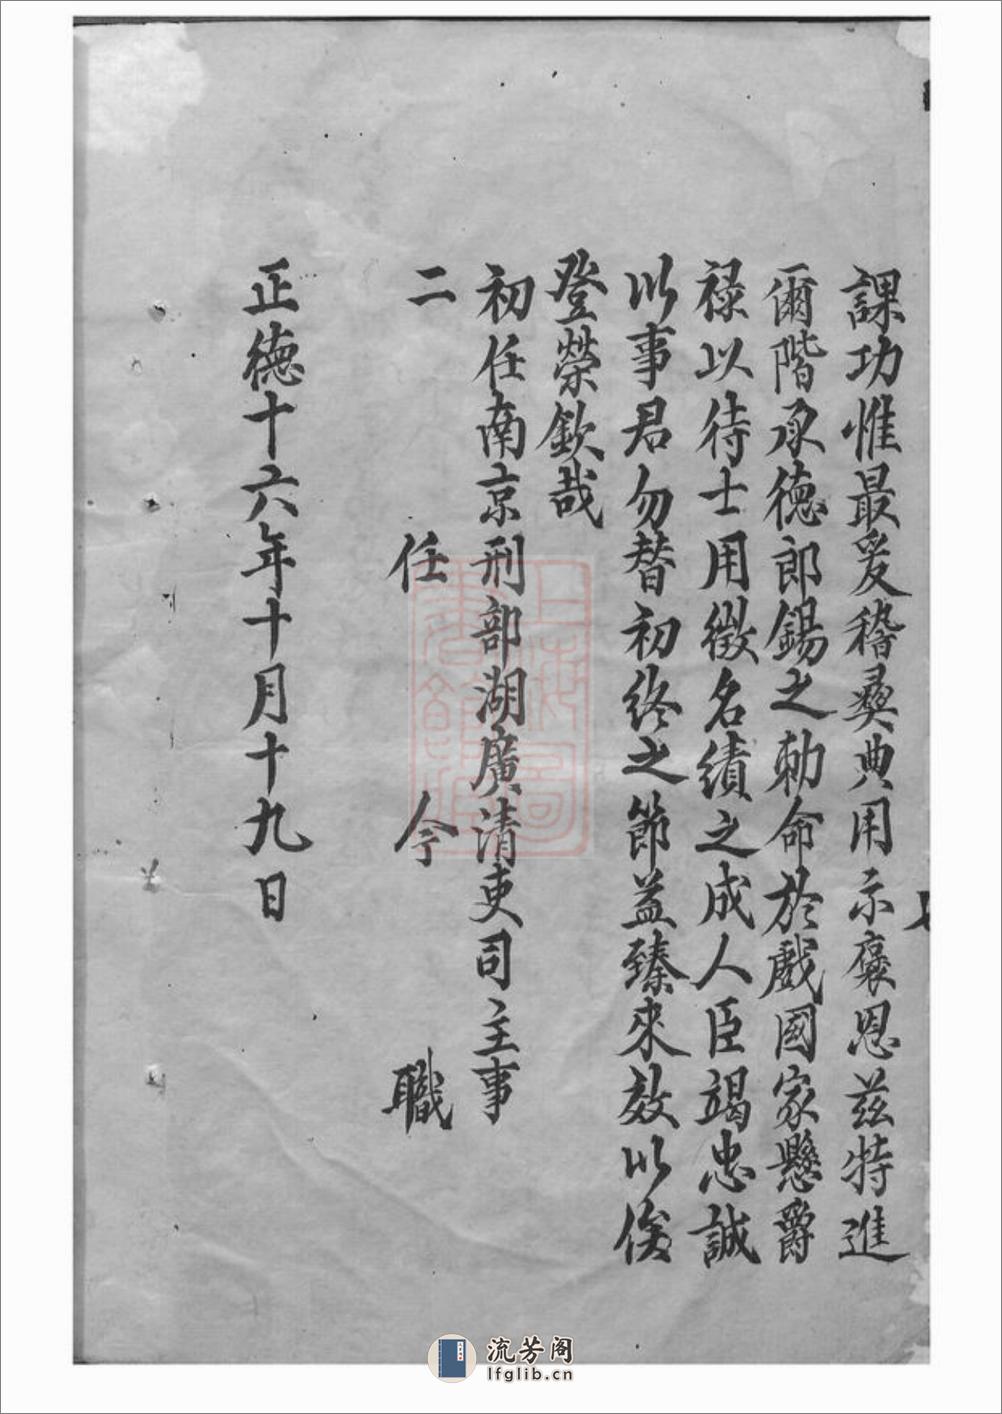 課功惟最爰稽彜典用示褒恩茲特進
爾階承德郎錫之勅命於戲國家懸爵
禄以待士用徴名績之成人臣竭忠誠
以事君勿替初終之節益臻來效以俟
登榮欽哉
初任南京刑部湖廣清吏司主事
二任今職
正德十六年十月十九日
上海圖書館藏
流芳阁
lfglib.cn